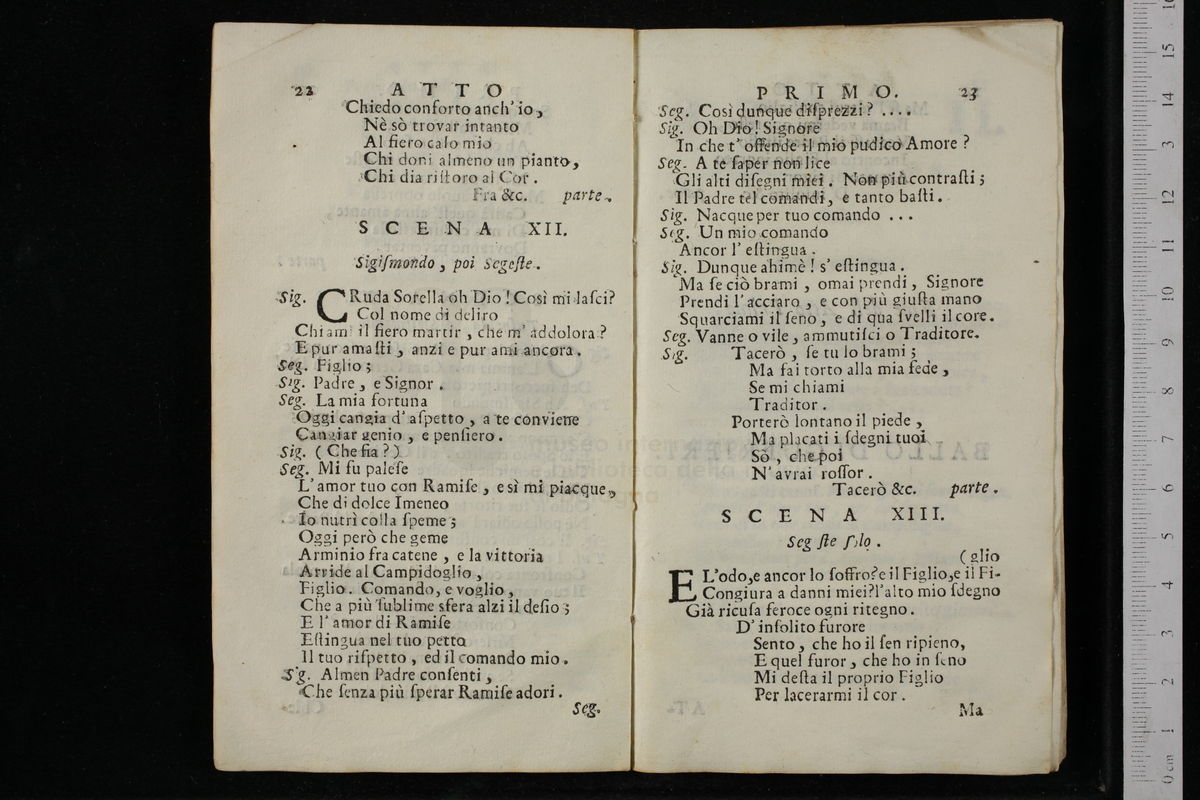 22 ATTO
Chiedo conforto anch' io,
Nè sò trovar intanto
Al fiero caso mio
Chi doni almeno un pianto,
Chi dia ristoro al Cor.
Fra &c. parte.
SCENA XII.
Sigiſmondo, poi Segeſte.
Sig. CRuda Sorella oh Dio! Così mi laſci?
Col nome di deliro
Chiami il fiero martir, che m' addolora?
E pur amaſti, anzi e pur ami ancora.
Seg. Figlio;
Sig. Padre, e Signor.
Seg. La mia fortuna
Oggi cangia d' aſpetto, a te conviene
Cangiar genio, e penſiero.
Sig. (Che fia?)
Seg. Mi fu paleſe
L' amor tuo con Ramiſe, e sì mi piacque,
Che di dolce Imeneo
Io nutrì colla ſpeme;
Oggi però che geme
Arminio fra catene, e la vittoria
Arride al Campidoglio,
Figlio. Comando, e voglio,
Che a più ſublime sfera alzi il deſio;
E l' amor di Ramiſe
Eſtingua nel tuo petto
Il tuo riſpetto, ed il comando mio.
Sig. Almen Padre conſenti,
Che ſenza più ſperar Ramiſe adori.
Seg.
PRIMO. 23
Seg. Così dunque diſprezzi? ....
Sig. Oh Dio! Signore
In che t' offende il mio pudico Amore?
Seg. A te ſaper non lice
Gli alti diſegni miei. Non più contraſti;
Il Padre tel comandi, e tanto baſti.
Sig. Nacque per tuo comando ...
Seg. Un mio comando
Ancor l' eſtingua.
Sig. Dunque ahimè! s' eſtingua.
Ma ſe ciò brami, omai prendi, Signore
Prendi l' acciaro, e con più giuſta mano
Squarciami il ſeno, e di qua ſvelli il core.
Seg. Vanne o vile, ammutiſci o Traditore.
Sig. Tacerò, ſe tu lo brami;
Ma fai torto alla mia fede,
Se mi chiami
Traditor.
Porterò lontano il piede,
Ma placati i ſdegni tuoi
Sò, che poi
N' avrai roſſor.
Tacerò &c. parte.
SCENA XIII.
Segeſte ſolo.
(glio
EL'odo,e ancor lo ſoffro?e il Figlio,e il Fi-
Congiura a danni miei?l'alto mio ſdegno
Già ricuſa feroce ogni ritegno.
D' inſolito furore
Sento, che ho il ſen ripieno,
E quel furor, che ho in ſeno
Mi deſta il proprio Figlio
Per lacerarmi il cor.
Ma